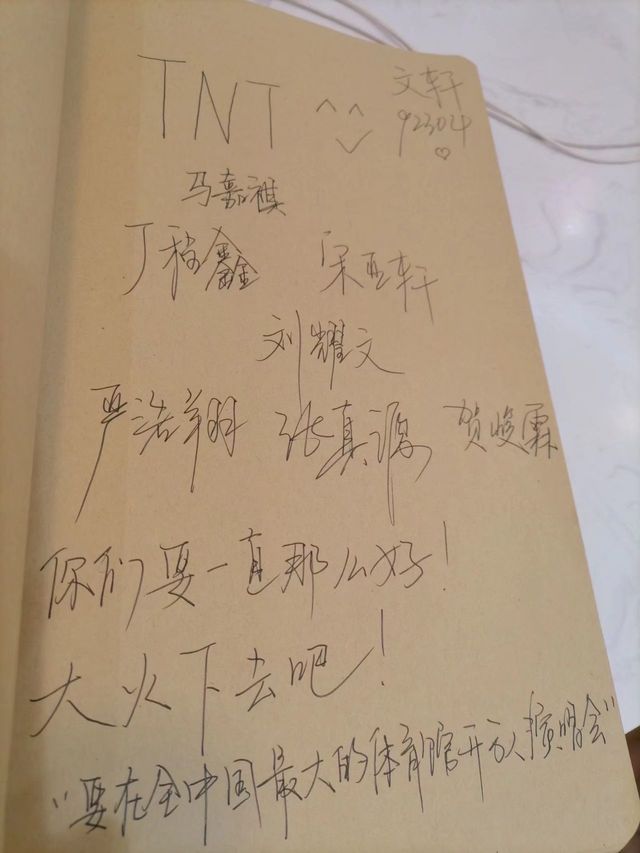 TNT ^^
文轩
92304
♡
马嘉祺
丁程鑫 宋亚轩
刘耀文
严浩翔 张真源 贺峻霖
你们要一直那么好!
大火下去吧!
"要在全中国最大的体育馆开万人演唱会"